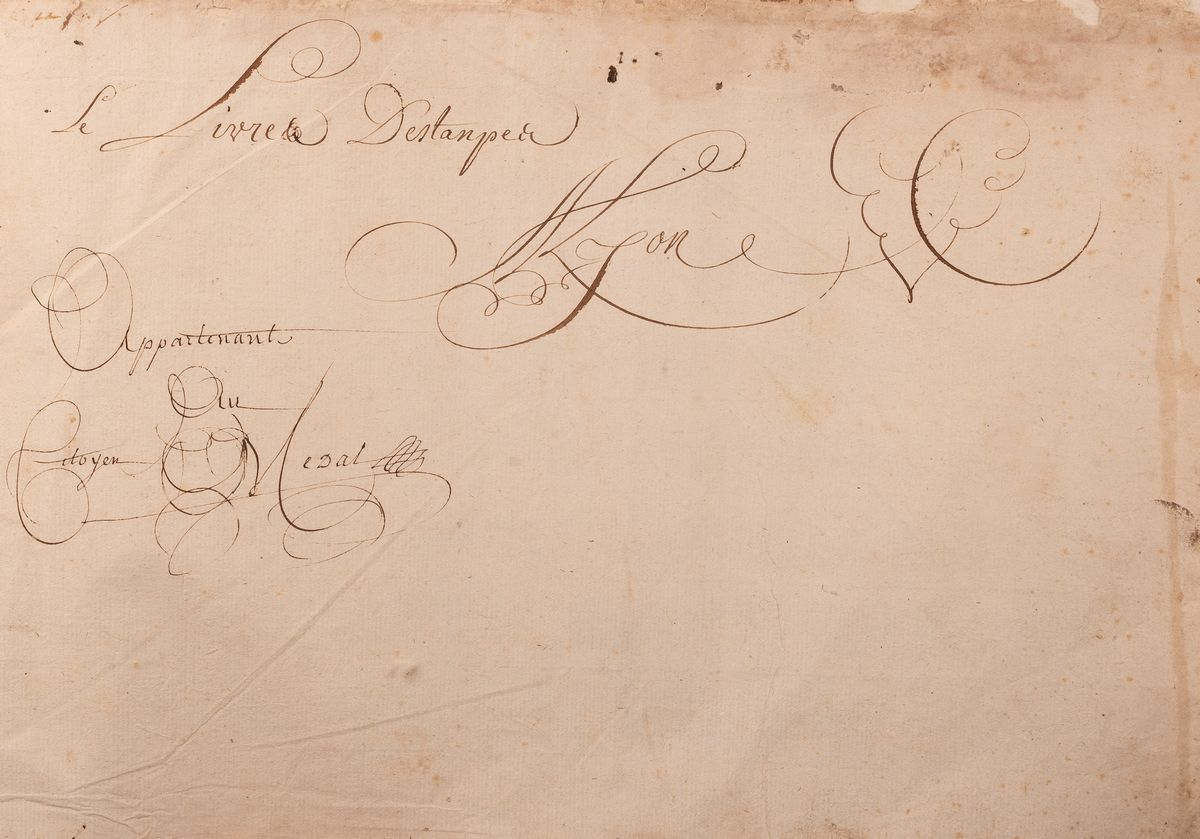 Le Livres Destanpes
Appartenant
Au
Citoyen Medal